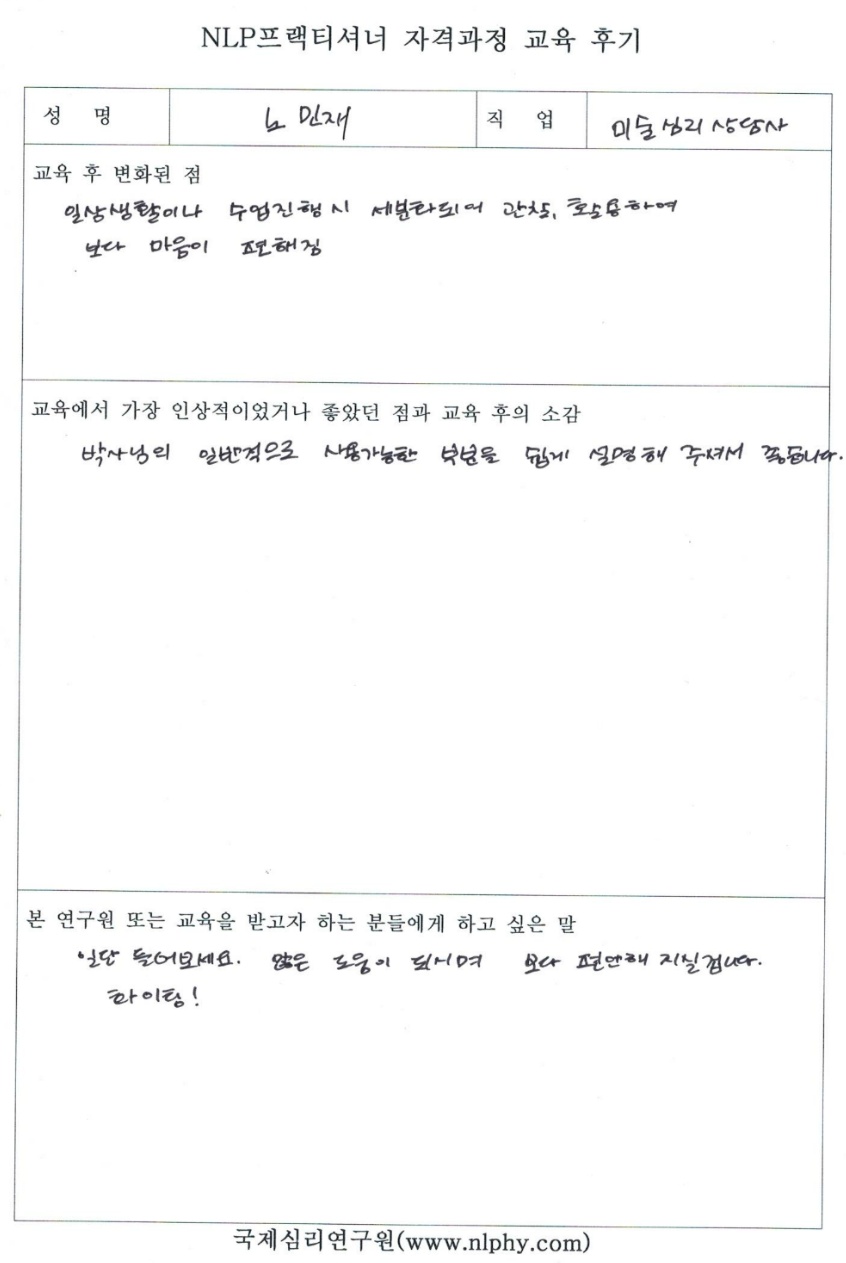 NLP프랙티셔너 자격과정 교육 후기
성 명 노 민재 직 업 미술심리상담사
교육 후 변화된 점
일상생활이나 수업진행 시 세분화되어 관찰, 호소용하여
보다 마음이 편해짐
교육에서 가장 인상적이었거나 좋았던 점과 교육 후의 소감
박사님의 일반적으로 사용가능한 부분을 쉽게 설명해 주셔서 좋습니다.
본 연구원 또는 교육을 받고자 하는 분들에게 하고 싶은 말
일단 들어보세요. 많은 도움이 되시며 보다 편안해 지실겁니다.
화이팅!
국제심리연구원(www.nlphy.com)